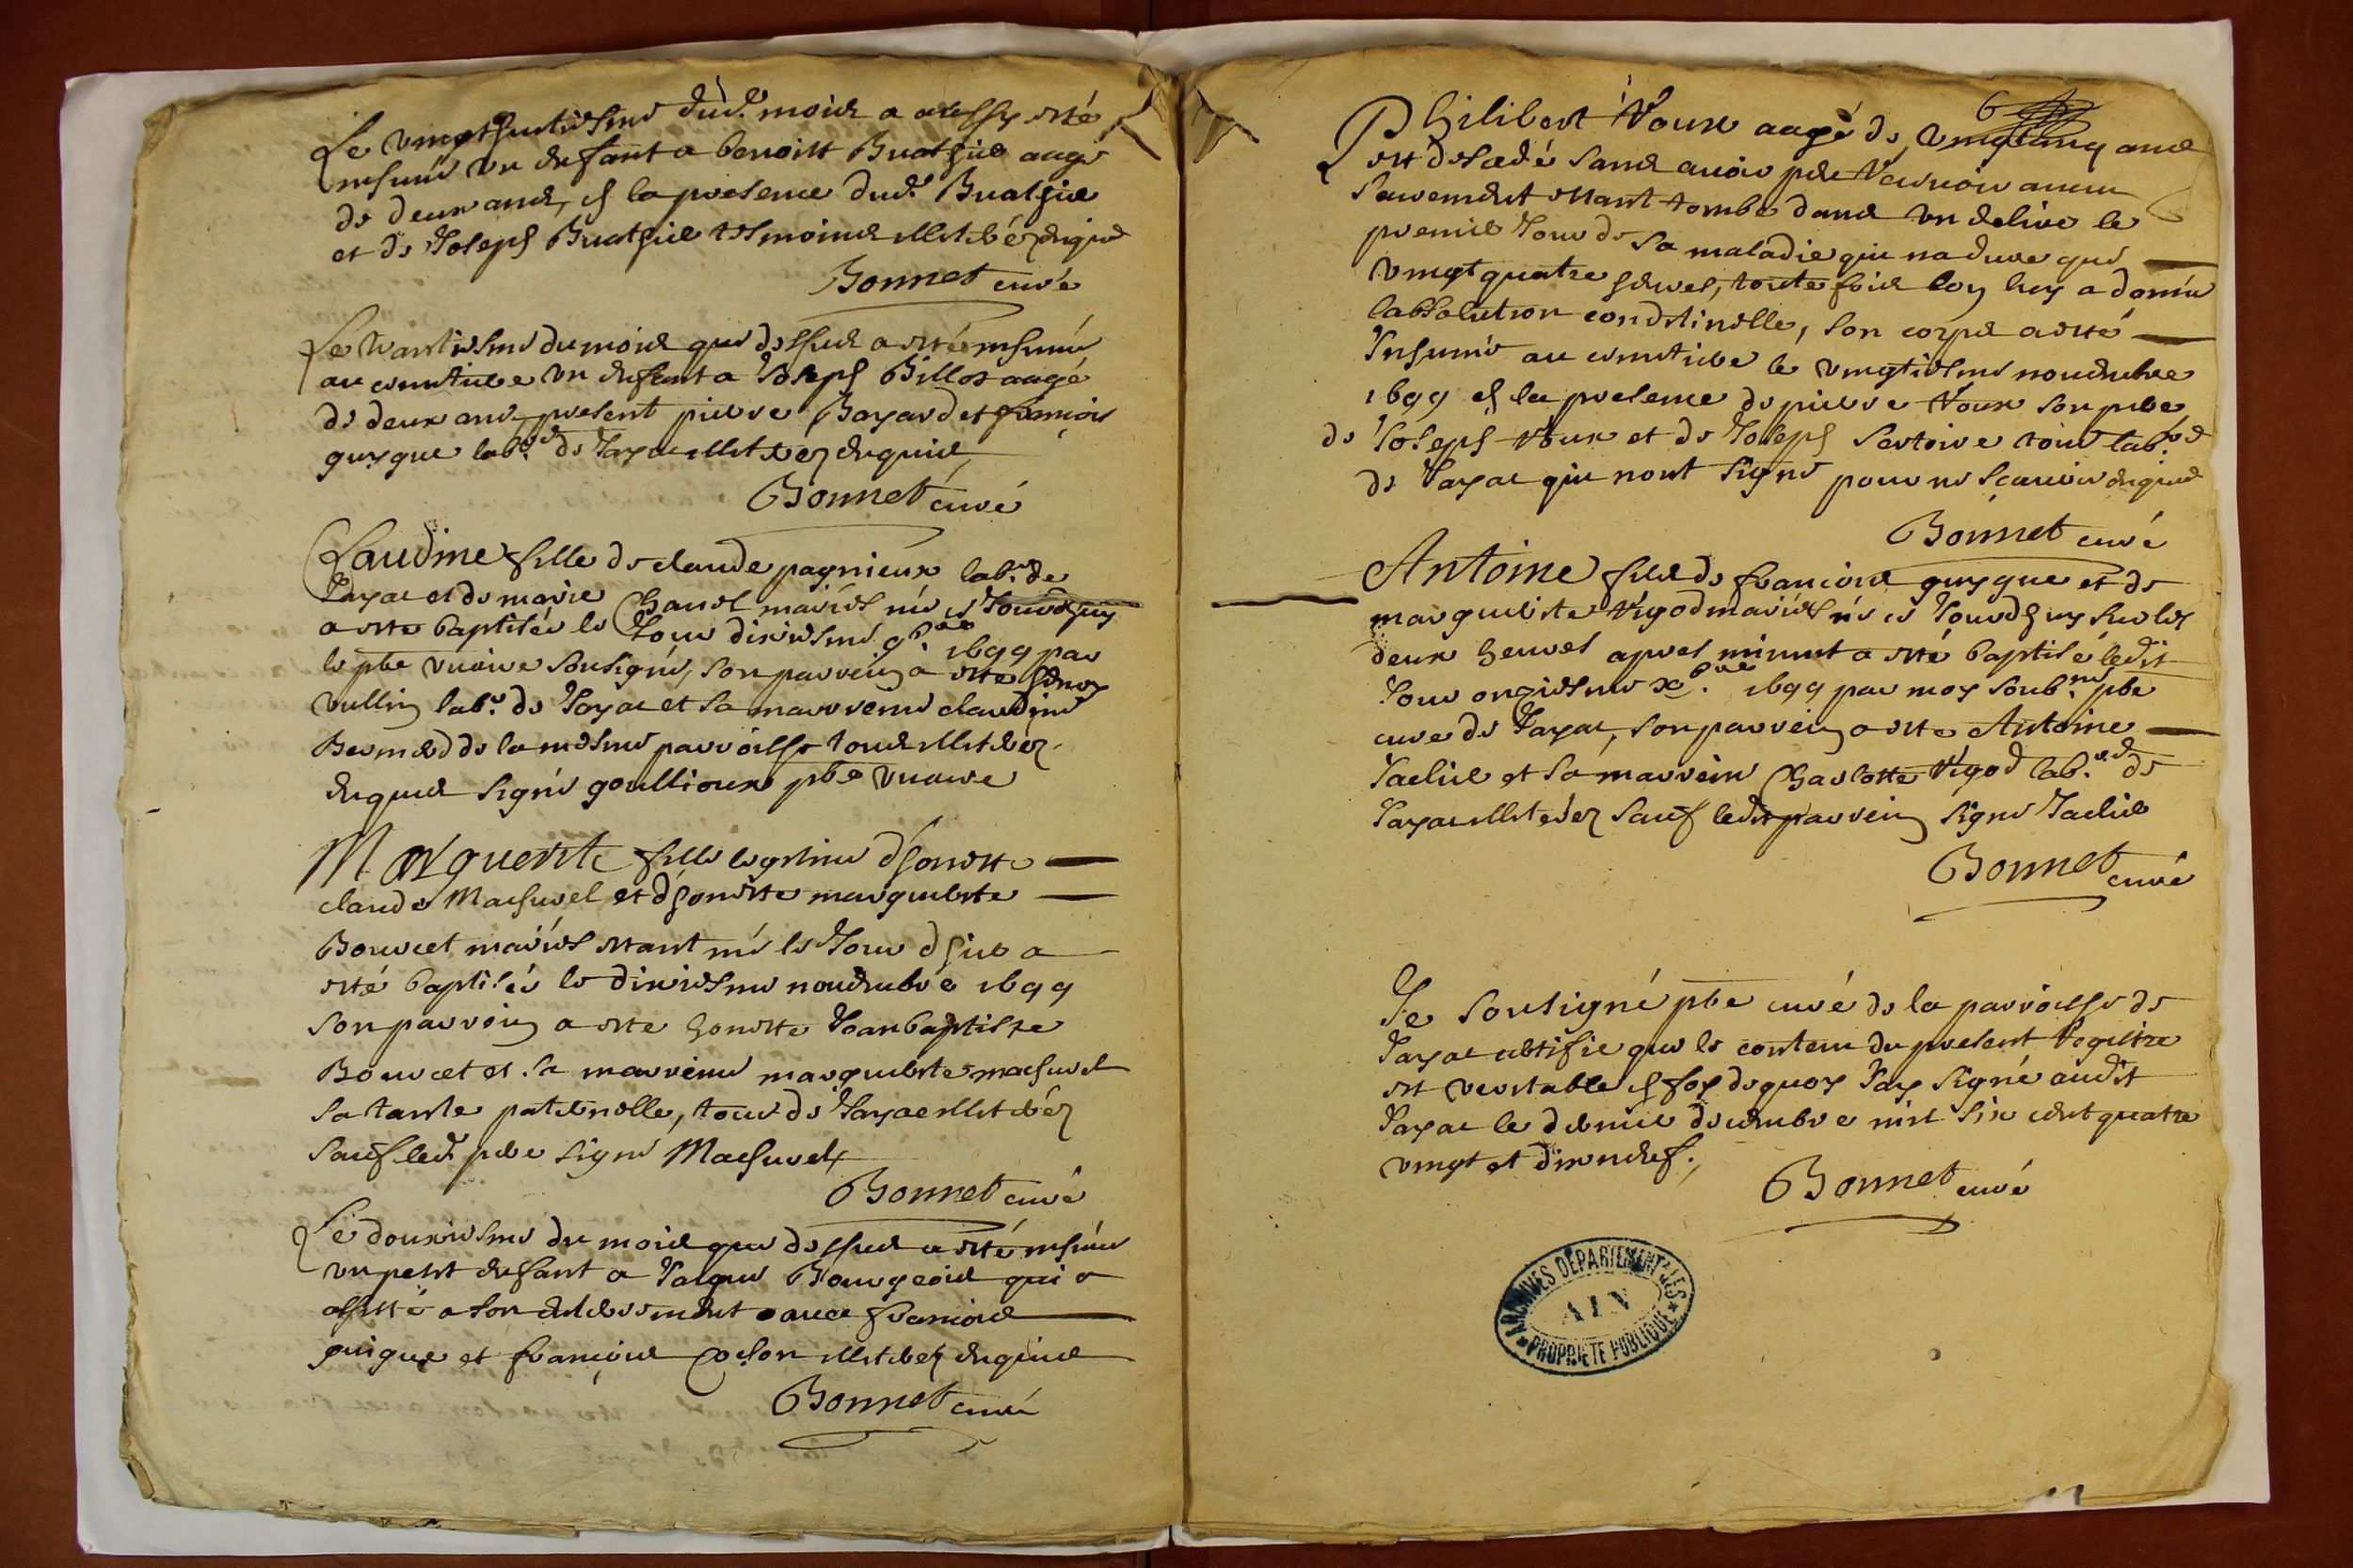 Le vingthuitiesme dud. mois a aussy esté
inhumé un enfant a benoist Buathier aagé
de deux ans, en la presence dud. Buathier
et de Joseph Buathier tesmoins illiterez enquis
Bonnet curé
Le trantiesme du mois que dessus a esté inhumé
au cimetiere un enfant a Joseph Billot aagé
de deux ans, present pierre Bayard et francois
guygue lab.rs de Jayac illiterez enquis
Bonnet curé
Claudine fille de claude pagnieux lab.r de
Jayac et de marie Chanel mariés née
a este baptisée le Jour dixiesme 9bre 1699 par
le pbre vicaire sousigné, son parrein a este
vullin lab.r de Jayac et sa marreine claudine
de la mesme parroisse tous illiterez
enquis signé goullioux pbre vicaire
Marguerite fille legitime d'honeste
claude Machurel et d'honeste marguerite
Bourcet mariés estant née le Jour d'hier a
esté baptisée le dixiesme novembre 1699
son parrein a este honeste Jean baptiste
Bourcet et sa marreine marguerite machurel
sa tante paternelle, tous de Jayac illiterez
sauf led. pere signé Machurel
Bonnet curé
Le douziesme du mois que dessus a esté inhumé
un petit enfant a Jaque Bourgeois qui a
assisté a son enterrement avec francois
guigue et francois Cochon illiterez enquis
Bonnet curé
6
Philibert Roux aagé de vingtcinq ans
est decedé sans avoir peu recevoir aucun
sacrement estant tombé dans un delire le
premier Jour de sa maladie qui na dure que
vingt quatre heures, toutefois lon luy a donné
labsolution conditionelle, son corps a esté
Inhumé au cimetiere le vingtiesme novembre
1699 en la presence de pierre Roux son pere
de Joseph Roux et de Joseph Sertoire tous lab.rs
de Jayac qui nont signé pour ne scavoir enquis
Bonnet curé
Antoine fils de francois guygue et de
marguerite Rigod mariés né ce Jourdhuy sur les
deux heures apres minuit a esté baptisé ledit
Jour onziesme xbre 1699 par moy soub.né pbre
curé de Jayac, son parrein a este Antoine
Jaclier et sa marreine Charlotte Rigod lab.rs de
Jayac illiterez sauf ledit parrein signé Jaclier
Bonnet curé
Je sousigné pbre curé de la parroisse de
Jayac certifie que le contenu du present Registre
est veritable en foy de quoy Jay signé audit
Jayac le dernier decembre mil six cent quatre
vingt et dixneuf.
Bonnet curé
ARCHIVES DÉPARTEMENTALES
AIN
PROPRIÉTÉ PUBLIQUE